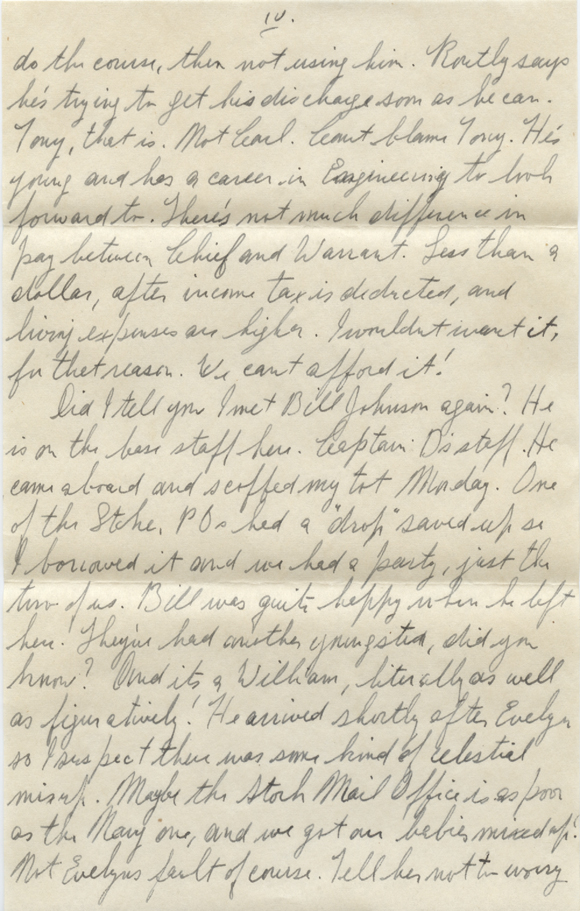 IV.
do the course, then not using him. Routly says
he's trying to get his discharge soon as he can.
Tony, that is. Not Carl. Can't blame Tony. He's
young and has a career in Engineering to look
forward to. There's not much difference in
pay between Chief and Warrant. Less than a
dollar, after income tax is deducted, and
living expenses are higher. I wouldn't want it,
for that reason. We can't afford it!
Did I tell you I met Bill Johnson again? He
is on the base staff here. Captain D's staff. He
came aboard and scoffed my tot Monday. One
of the Stoker P Os had a "drop" saved up so
I borrowed it and we had a party, just the
two of us. Bill was quite happy when he left
here! They've had another youngster, did you
know? And it's a William, literally as well
as figuratively! He arrived shortly after Evelyn
so I suspect there was some kind of celestial
mixup. Maybe the Stork Mail Office is as poor
as the Navy one, and we got our babies mixed up!
Not Evelyns fault of course. Tell her not to worry